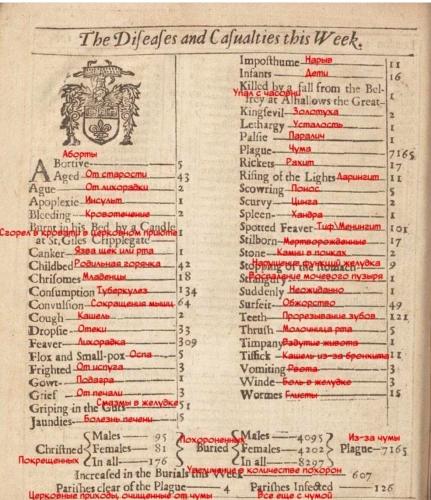 The Diseases and Casualties this Week.
Аборты
Abortive 5
Aged От старости 43
Ague От лихорадки 2
Apoplexie Инсульт 1
Bleeding Кровотечение 2
Burnt in his Bed by a Candle
Сгорел в кровати в церковном приюте 1
at St. Giles Cripplegate
Canker Язва щек или рта 1
Childbed Родильная горячка 42
Chrisomes Младенцы 18
Consumption Туберкулез 134
Convulsion Сокращения мышц 64
Cough Кашель 2
Dropsie Отеки 33
Feaver Лихорадка 309
Flox and Small-pox Оспа 5
Frighted От испуга 3
Gowt Подагра 1
Grief От печали 3
Griping in the Guts Спазмы в желудке 51
Jaundies Болезнь печени 5
Imposthume Нарыв 11
Infants Дети 16
Killed by a fall from the Bel-
Упал с часовни
frey at Alhallows the Great 1
Kingsevil Золотуха 2
Lethargy Усталость 1
Palsie Паралич 1
Plague Чума 7165
Rickets Рахит 17
Rising of the Lights Ларингит 11
Scowring Понос 5
Scurvy Цинга 2
Spleen Хандра 1
Spotted Feaver Тиф\Менингит 101
Stilborn Мертворожденные 17
Stone Камни в почках 2
Stopping of the stomach 9
Strangury
Воспаление мочевого пузыря
Suddenly Неожиданно 1
Surfeit Обжорство 49
Teeth Прорезывание зубов 121
Thrush Молочница рта 5
Timpany Вздутие живота 1
Tissick Кашель из-за бронхита 11
Vomiting Рвота 3
Winde Боль в желудке 3
Wormes Глисты 15
Похороненных
Из-за чумы
Christned Males 95 Females 81 In all 176
Buried Males 4095 Females 4202 In all 8297
Plague 7165
Покрещенных
Увеличение в количестве похорон
Increased in the Burials this Week 607
Parishes clear of the Plague 4 Parishes Infected 126
Церковные приходы, очищенные от чумы Все еще с чумой